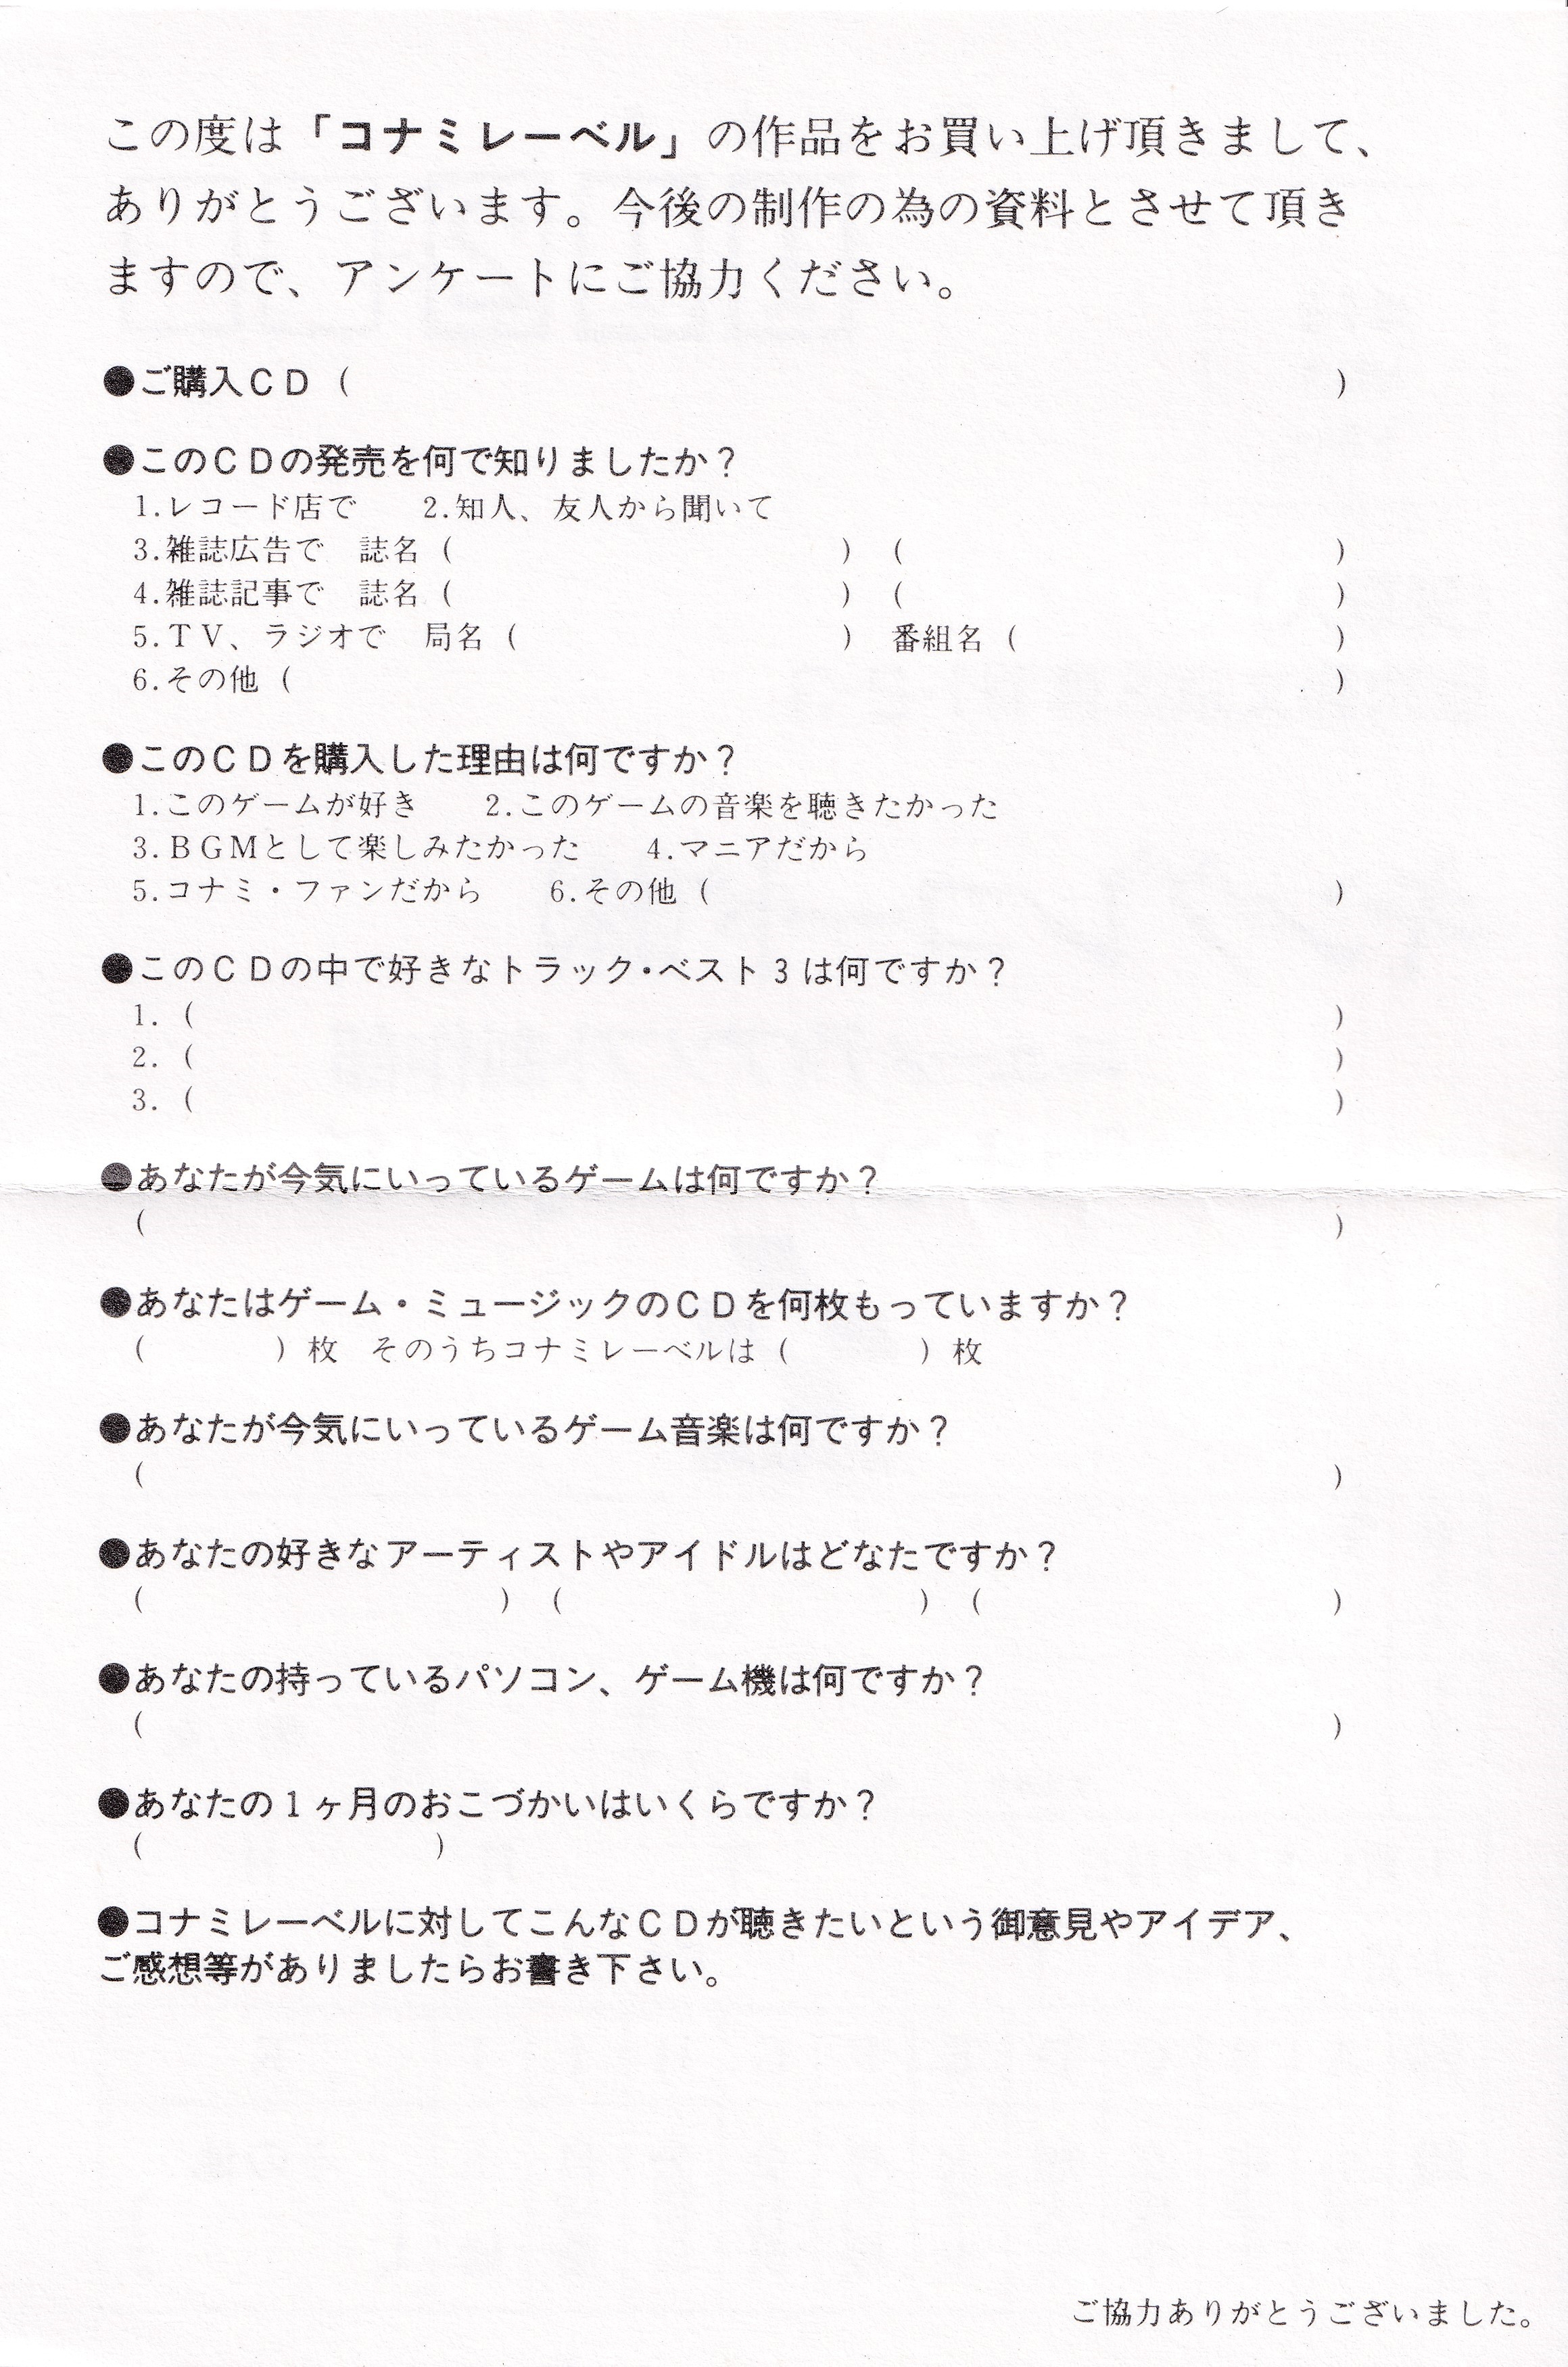 この度は「コナミレーベル」の作品をお買い上げ頂きまして、
ありがとうございます。今後の制作の為の資料とさせて頂き
ますので、アンケートにご協力ください。
●ご購入ＣＤ（　　　　　　　　　　）
●このＣＤの発売を何で知りましたか？
1.レコード店で　　2.知人、友人から聞いて
3.雑誌広告で　誌名（　　　　　　）（　　　　　　）
4.雑誌記事で　誌名（　　　　　　）（　　　　　　）
5.ＴＶ、ラジオで　局名（　　　　　　）　番組名（　　　　　　）
6.その他（　　　　　　　　　　）
●このＣＤを購入した理由は何ですか？
1.このゲームが好き　　2.このゲームの音楽を聴きたかった
3.ＢＧＭとして楽しみたかった　　4.マニアだから
5.コナミ・ファンだから　　6.その他（　　　　　　　　）
●このＣＤの中で好きなトラック・ベスト３は何ですか？
1.（　　　　　　　　　　）
2.（　　　　　　　　　　）
3.（　　　　　　　　　　）
●あなたが今気にいっているゲームは何ですか？
（　　　　　　　　　　）
●あなたはゲーム・ミュージックのＣＤを何枚もっていますか？
（　　　　）枚　そのうちコナミレーベルは（　　　　）枚
●あなたが今気にいっているゲーム音楽は何ですか？
（　　　　　　　　　　）
●あなたの好きなアーティストやアイドルはどなたですか？
（　　　　　　）（　　　　　　）（　　　　　　）
●あなたの持っているパソコン、ゲーム機は何ですか？
（　　　　　　　　　　）
●あなたの１ヶ月のおこづかいはいくらですか？
（　　　　　　）
●コナミレーベルに対してこんなＣＤが聴きたいという御意見やアイデア、
ご感想等がありましたらお書き下さい。
ご協力ありがとうございました。